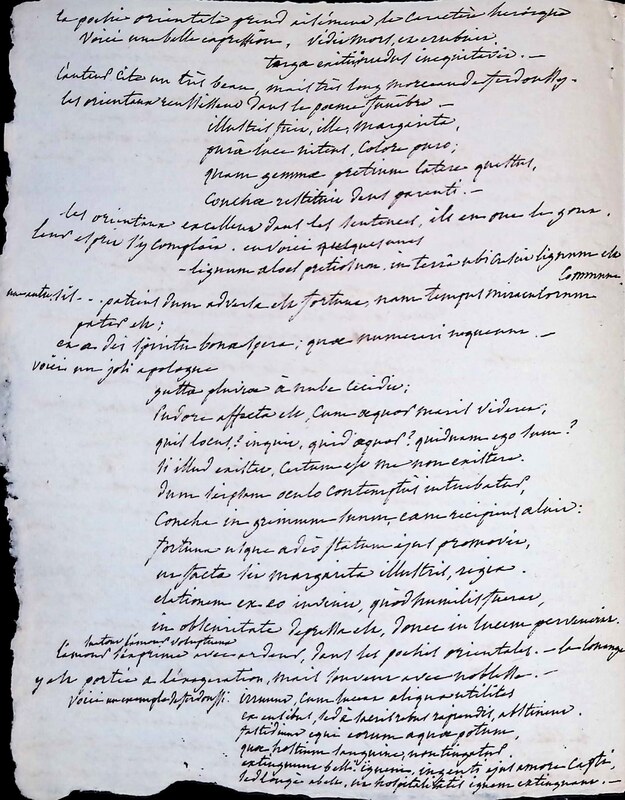 la poesie orientale prend aisément le caractère heroique
Voici une belle expression, vidit mors, et erubuit,
terga equitantibus
l'auteur cite un très beau, mais très long morceau de ferdoussy.
les orientaux reussissent dans le poeme funèbre —
illustris fuit, ille, margarita,
purâ luce nitens, colore puro;
quam gemmæ pretium latere questus,
Conchæ restituit Deus parenti. —
les orientaux excellent dans les sentences, ils en ont le gout.
leur esprit s'y complait. en voici quelques unes
— lignum aloes pretiosum, in terrâ ubi crescit lignum est
Commune.
patiens dum adversa est fortuna, nam tempus miraculorum
pater est;
ex a deo spiritu bona spera; quæ numerari nequeunt. —
voici un joli apologue
gutta pluviæ à nube cecidit;
Pudore affecta est, cum æquor maris videret,
quis locus? inquit, quid æquor? quidnam ego sum?
si illud existit, certum est me non existere.
dum seipsam oculo contemptus intuebatur,
Concha in gremium suum, eam recipiens aluit:
fortuna usque adeò statum ejus promovit,
ut facta sit margarita illustris, regia.
elationem ex eo invenit, quod humilis fuerat,
in obscuritate depressa est, donec in lucem perveniret.
l'amour voluptueux
l'amour s'exprime avec ardeur, dans les poesies orientales. — la louange
y est portée a l'exageration, mais souvent avec noblesse. —
Voici un exemple de ferdoussi. irruunt, cum lucem aliqua utilitas
ex ensibus, sed à sacris rebus rapiendis, abstinent.
fastidiunt equi eorum aquæ potum,
quæ hostium sanguine, non tingatur
extinguunt belli ignem, ingenti ejus amore capti,
sed longè abest, ut hospitalitatis ignem extinguant. —